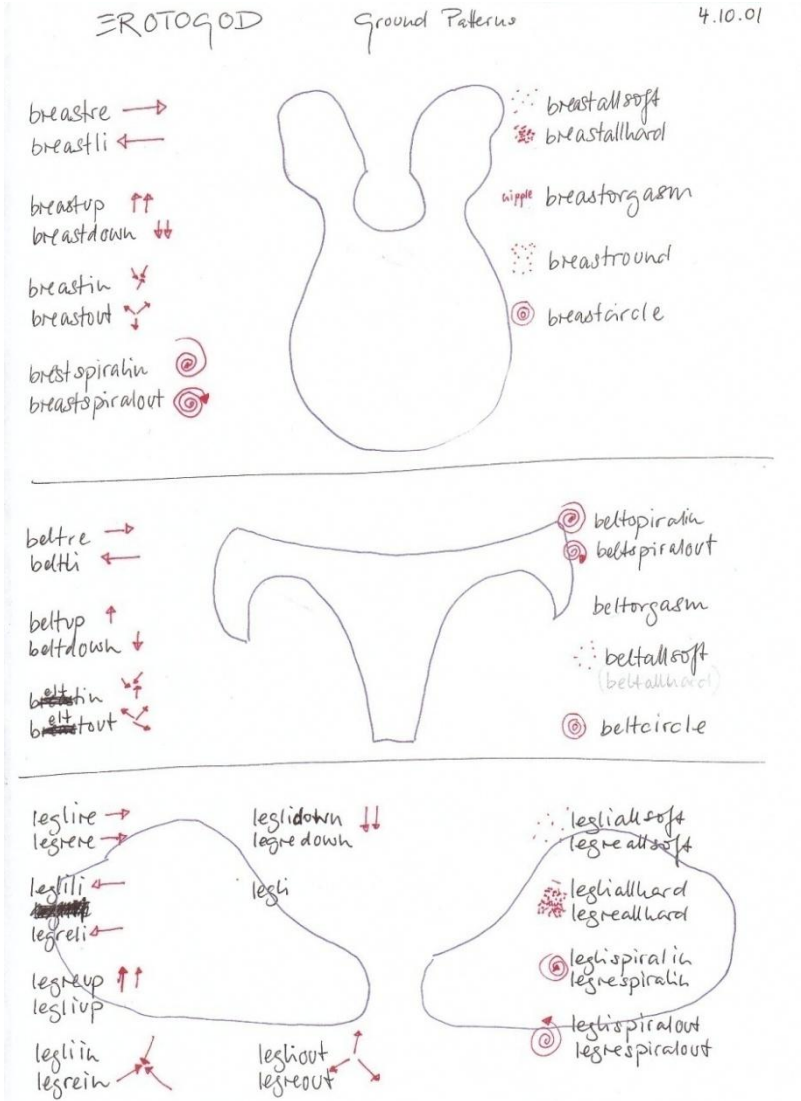 EROTOGOD Ground Patterns 4.10.01
breastre
breastli
breastup
breastdown
breastin
breastout
brestspiralin
breastspiralout
breastallsoft
breastallhard
nipple breastorgasm
breastround
breastcircle
beltre
beltli
beltup
beltdown
beltin
beltout
beltspiralin
beltspiralout
beltorgasm
beltallsoft
(beltallhard)
beltcircle
leglire
legrere
leglili
legreli
legreup
legliup
legliin
legrein
leglidown
legredown
legli
legliout
legreout
legliallsoft
legreallsoft
legliallhard
legreallhard
leglispiralin
legrespiralin
leglispiralout
legrespiralout